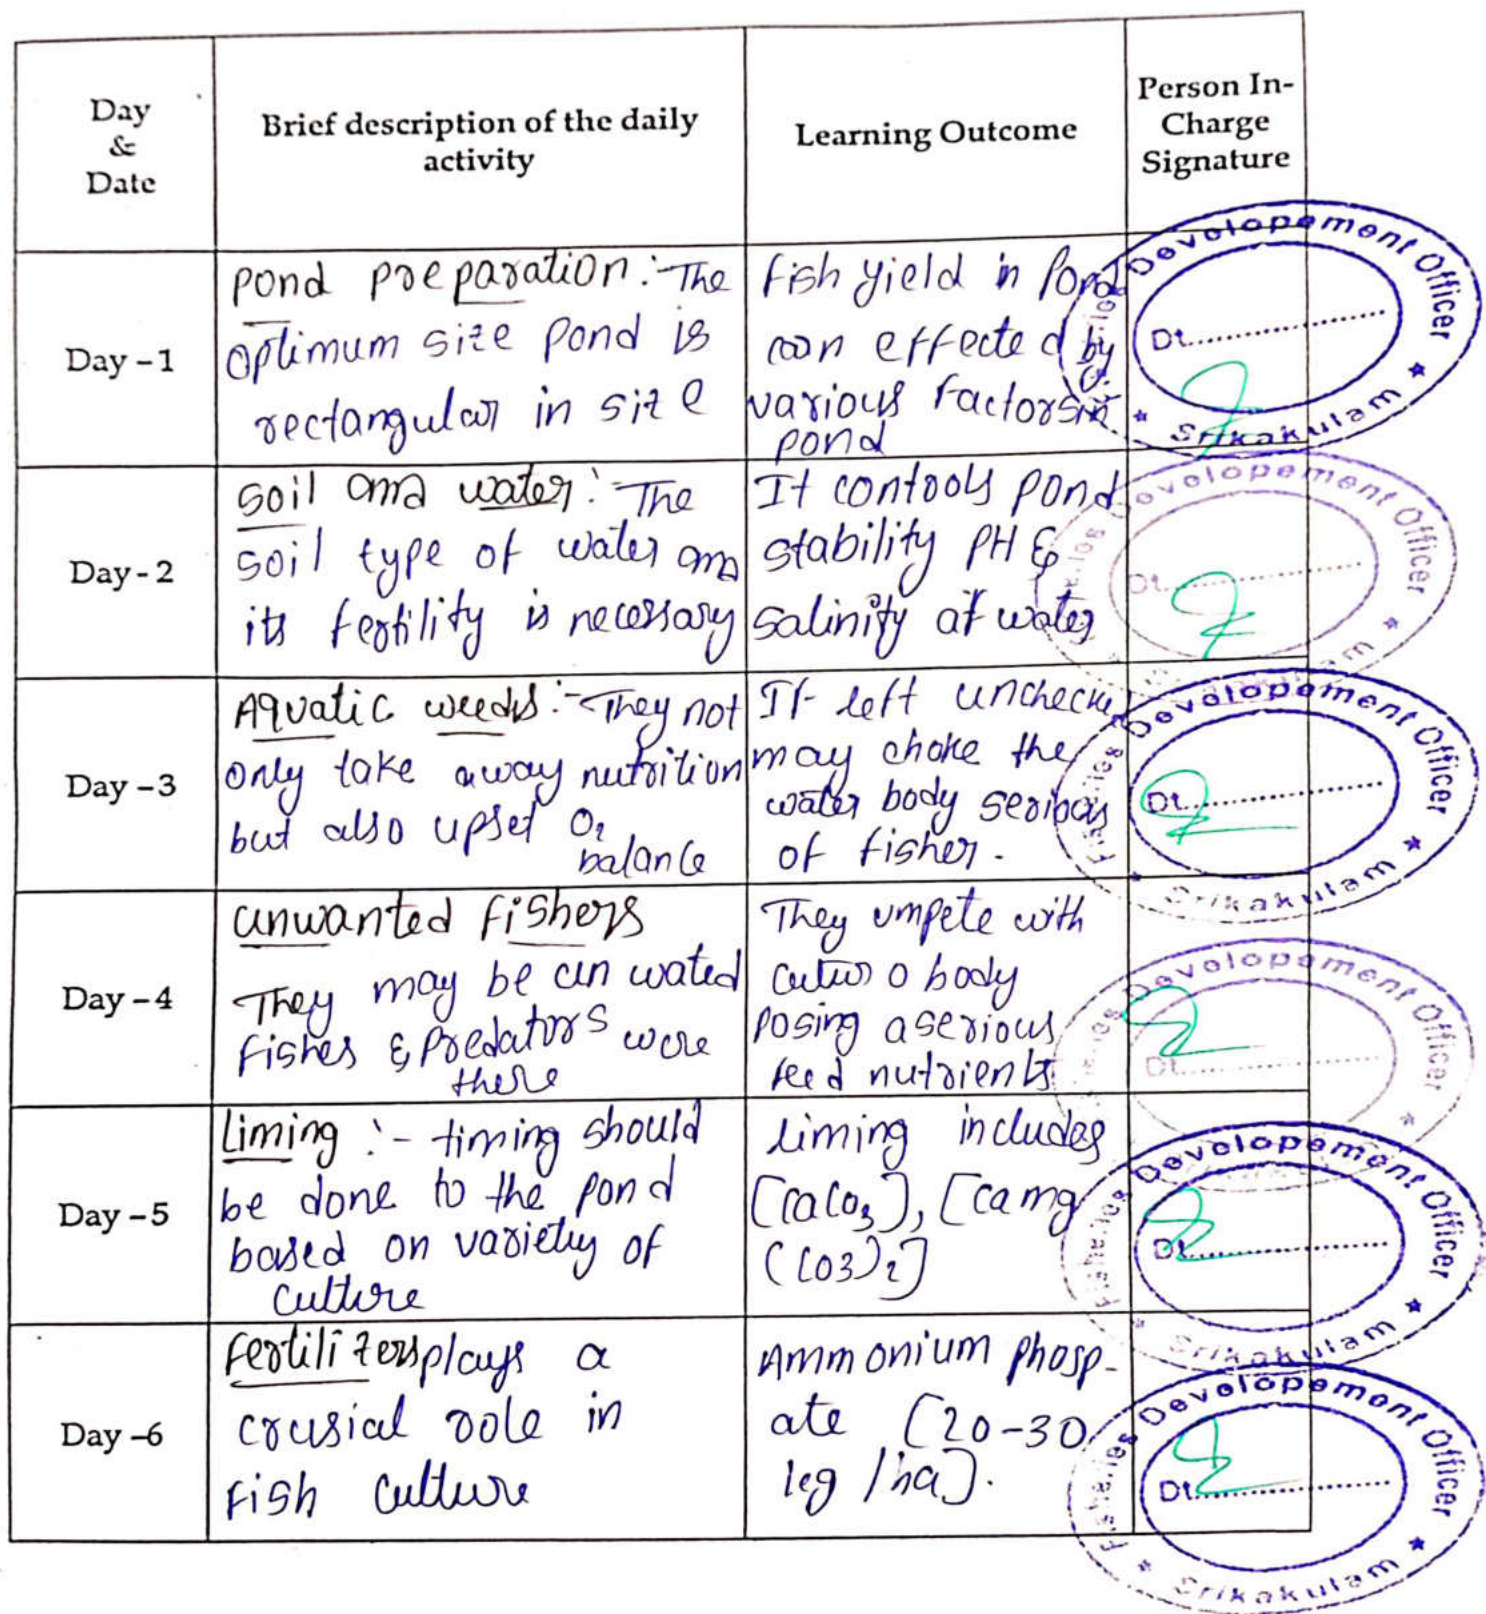 Day
&
Date
Brief description of the daily
activity
Learning Outcome
Person In-
Charge
Signature
Day - 1
Pond preparation :- The
optimum size pond is
rectangular in size
Fish yield in Pond
can effected by
various factors in
pond
Fisheries Developement Officer
Dt..................
* Srikakulam *
Day - 2
Soil and water :- The
soil type of water and
its fertility is necessary
It contools pond
stability PH &
salinity of water
Fisheries Developement Officer
Dt..................
Day - 3
Aquatic weeds :- They not
only take away nutrition
but also upset O2
balance
If left unchecke
may choke the
water body serious
of fisher.
Fisheries Developement Officer
Dt..................
* Srikakulam *
Day - 4
unwanted fishers
They may be un wated
Fishes & Predators were
there
They umpete with
body
posing a serious
feed nutrients
Fisheries Developement Officer
Dt..................
Day - 5
Liming :- timing should
be done to the pond
based on variety of
culture
Liming includes
[CaCo3], [camg
(CO3)2]
Fisheries Developement Officer
Dt..................
* Srikakulam *
Day -6
Fertilizers plays a
crusial role in
Fish culture
Ammonium phosp-
ate [20-30
kg /ha].
Fisheries Developement Officer
Dt..................
* Srikakulam *